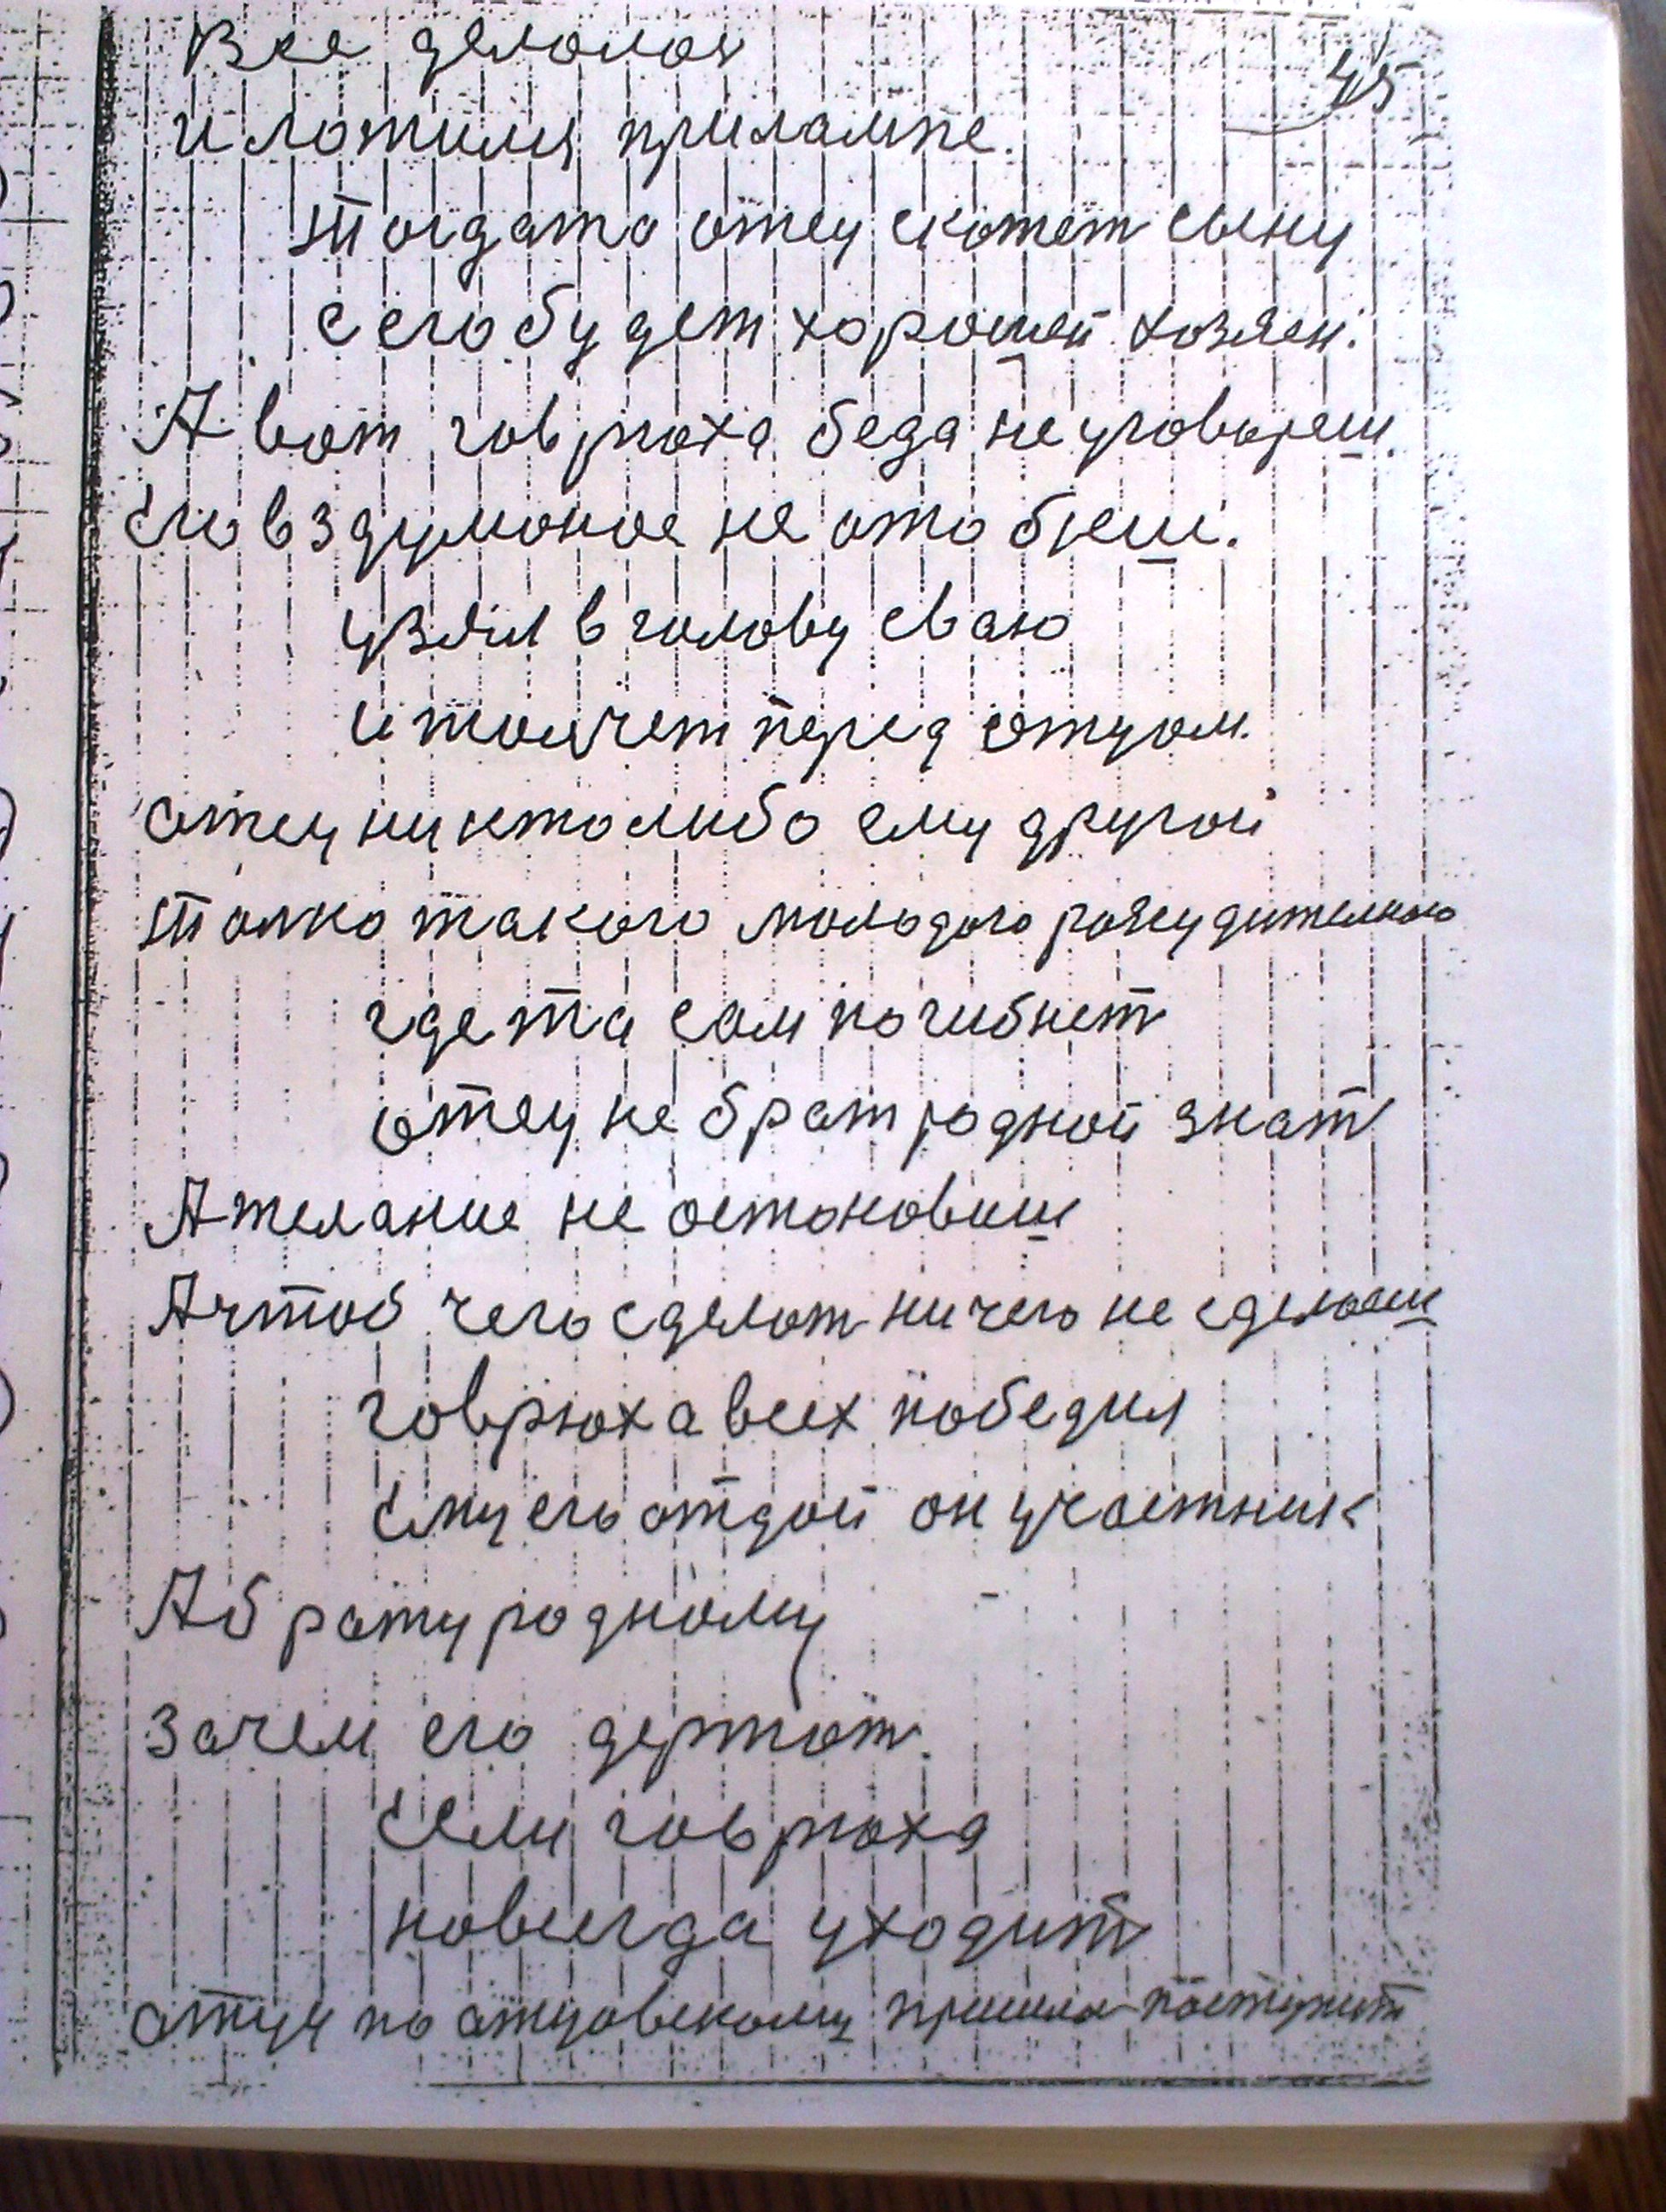 45
Все делолос
и ложился прилампе.
Тогдато отец скожет сыну
с его будет хорошей хозяен.
А вот говрюха беда не уговореш.
Его вздуманое не отобреш.
узял в голову сваю
и толчет перед отцом.
отец никтолибо ему другой
Толко такого молодого
где та сам погибнет
отец не брат родной знат
А желание не остоновиш
Ачтоб чего сделат ничего не сделаеш
говрюха всех победил
Ему его отдой он участник
Аб рату родному
зачем его держат.
Если говрюха
новсегда уходит
отцу по отцовскому пришло поступит